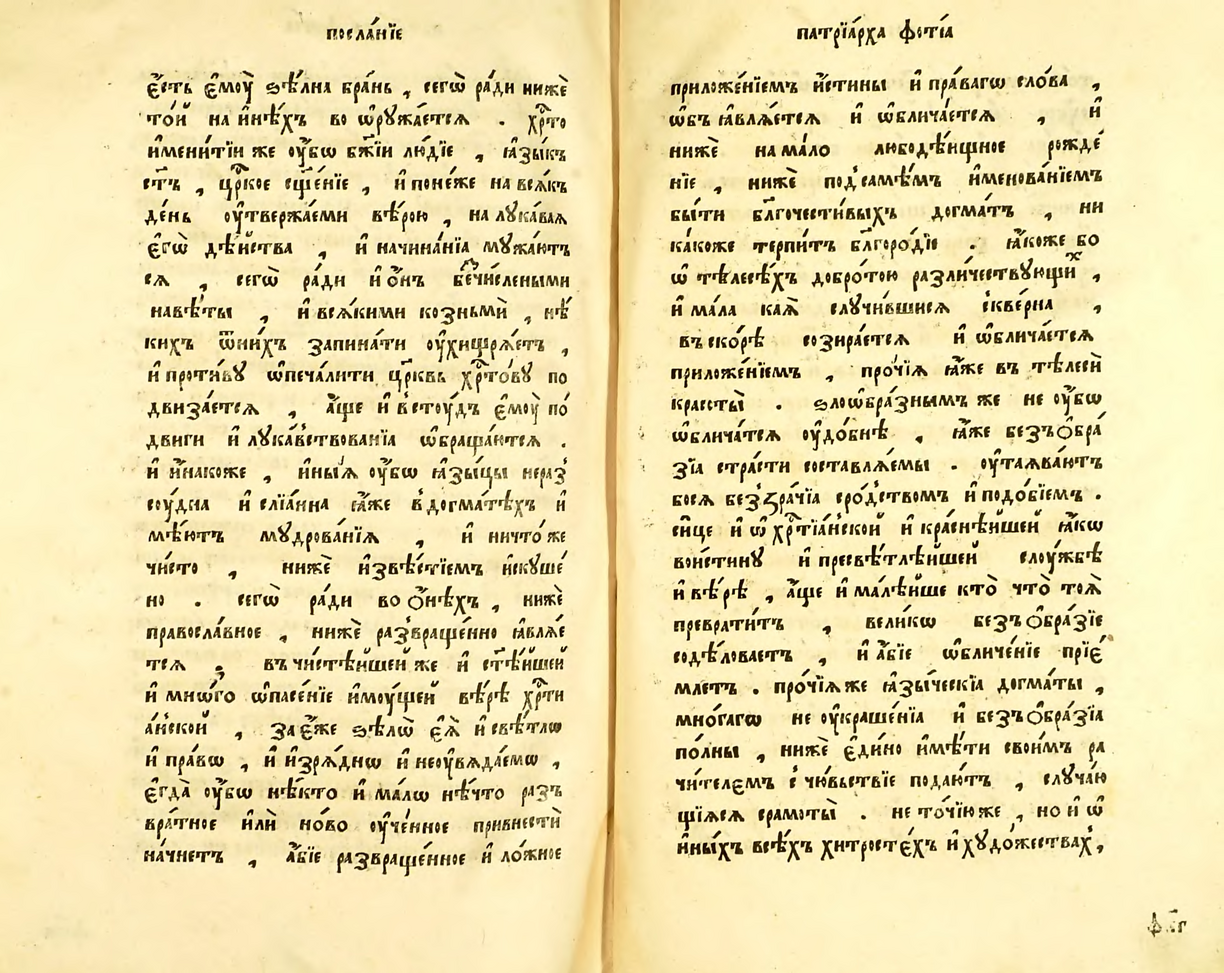 посла́нїе
є҆́сть є҆моу̀ ѕѣ́лна бра́нь , сегѡ̀ ра́ди нижѐ
то́й на и҆нѣ́хъ во ѡ҆рꙋжа́етсѧ . хрⷭ҇то
и҆мени́тїи же оу҆́бѡ бж҃їи лю́дїе , ꙗ҆зы́къ
ст҃ъ , црⷭ҇кое сщ҃е́нїе , и҆ поне́же на всѧ́къ
де́нь оу҆твержа́еми вѣ́рою , на лꙋка́ваѧ
є҆гѡ̀ дѣ́йства , и҆ начина́нїѧ мꙋжа́ютъ
сѧ , сегѡ̀ ра́ди и҆ ѻ҆́нъ бесчи́слеными
навѣ́ты , и҆ всѧ́кими ко́зньми , нѣ́
кихъ ѿ ни́хъ запина́ти оу҆хищрѧ́етъ ,
и҆ проти́вꙋ ѡ҆печа́лити цр҃ковь хрⷭ҇то́вꙋ по
двиза́етсѧ , а҆́ще и҆ встоу́дъ є҆моу̀ по́
двиги и҆ лꙋка́вствованїѧ ѡ҆браща́ютсѧ .
и҆ и҆́накоже , и҆ны́ѧ оу҆́бѡ ꙗ҆зы́цы нераз
соу́дна и҆ слїѧ́нна ꙗ҆́же в догма́тѣхъ и҆
мѣ́ютъ мꙋдрова́нїѧ , и҆ ничто́же
чи́сто , нижѐ и҆звѣ́стїемъ и҆скꙋше́
но . сегѡ̀ ра́ди во ѻ҆нѣ́хъ , нижѐ
правосла́вное , нижѐ развраще́нно ꙗ҆влѧ́е
тсѧ , въ чистѣ́йшей же и҆ ст҃ѣ́йшей
и҆ мнѡ́го ѡ҆пасе́нїе и҆моу́щей вѣ́рѣ хрⷭ҇ти
а́нской , за є҆́же ѕѣлѡ̀ є҆ѧ̀ и҆ свѣ́тлѡ
и҆ пра́вѡ , и҆ и҆зрѧ́днѡ и҆ неоувѧда́емѡ ,
є҆гда̀ оу҆́бѡ нѣ́кто и҆ ма́лѡ нѣ́что разъ
вра́тное и҆лѝ но́во оу҆че́нное привнестѝ
начне́тъ , а҆́бїе развраще́нное и҆ ло́жное
патрїа́рха фѡ́тїа
приложе́нїемъ и҆́стины и҆ пра́вагѡ сло́ва ,
ѡ҆бъꙗвлѧ́етсѧ и҆ ѡ҆блича́етсѧ , и҆
нижѐ на ма́ло любодѣ́ищное рожде́
нїе , нижѐ под самѣ́мъ и҆менова́нїемъ
бы́ти бл҃гочести́выхъ догма́тъ , ни
ка́коже терпи́тъ бл҃горо́дїе . ꙗ҆́коже бо
ѡ҆ тѣлесѣ́хъ добро́тою разли́чествꙋющихъ ,
и҆ ма́ла каѧ̀ слꙋчи́вшисѧ скве́рна ,
въско́рѣ созира́етсѧ и҆ ѡ҆блича́етсѧ
приложе́нїемъ , про́чїѧ ꙗ҆́же въ тѣлесѝ
красоты̀ . ѕлоѡбра́знымъ же не оу҆́бѡ
ѡ҆блича́тсѧ оу҆до́бнѣ , ꙗ҆́же безъѻбра́
зїа стра́сти составлѧ́емы . оу҆таѧва́ютъ
босѧ беззра́чїѧ сро́дством и҆ подо́бїемъ .
си́це и҆ ѡ҆ хрⷭ҇тїа́нской и҆ краснѣ́йшей ꙗ҆́кѡ
вои́стинꙋ и҆ пресвѣ́тлѣйшей слоу́жбѣ
и҆ вѣ́рѣ , а҆́ще и҆ малѣ́йше кто̀ что̀ тоѧ̀
преврати́тъ , вели́кѡ безъѻбра́зїе
содѣ́ловаетъ , и҆ а҆́бїе ѡ҆бличе́нїе прїе́
млетъ . про́чїѧже ꙗ҆зы́ческїа догма́ты ,
мно́гагѡ не оу҆краше́нїа и҆ безъѻбра́зїа
по́лны , нижѐ є҆ди́но и҆мѣ́ти свои́мъ ра
чи́телємъ с чю́вьствїе подаю́тъ , слꙋча́ю
щїѧсѧ срамоты̀ . не то́чїю же , но и҆ ѡ҆
и҆ны́хъ всѣ́хъ хи́тростехъ и҆ хꙋдо́жествах ,